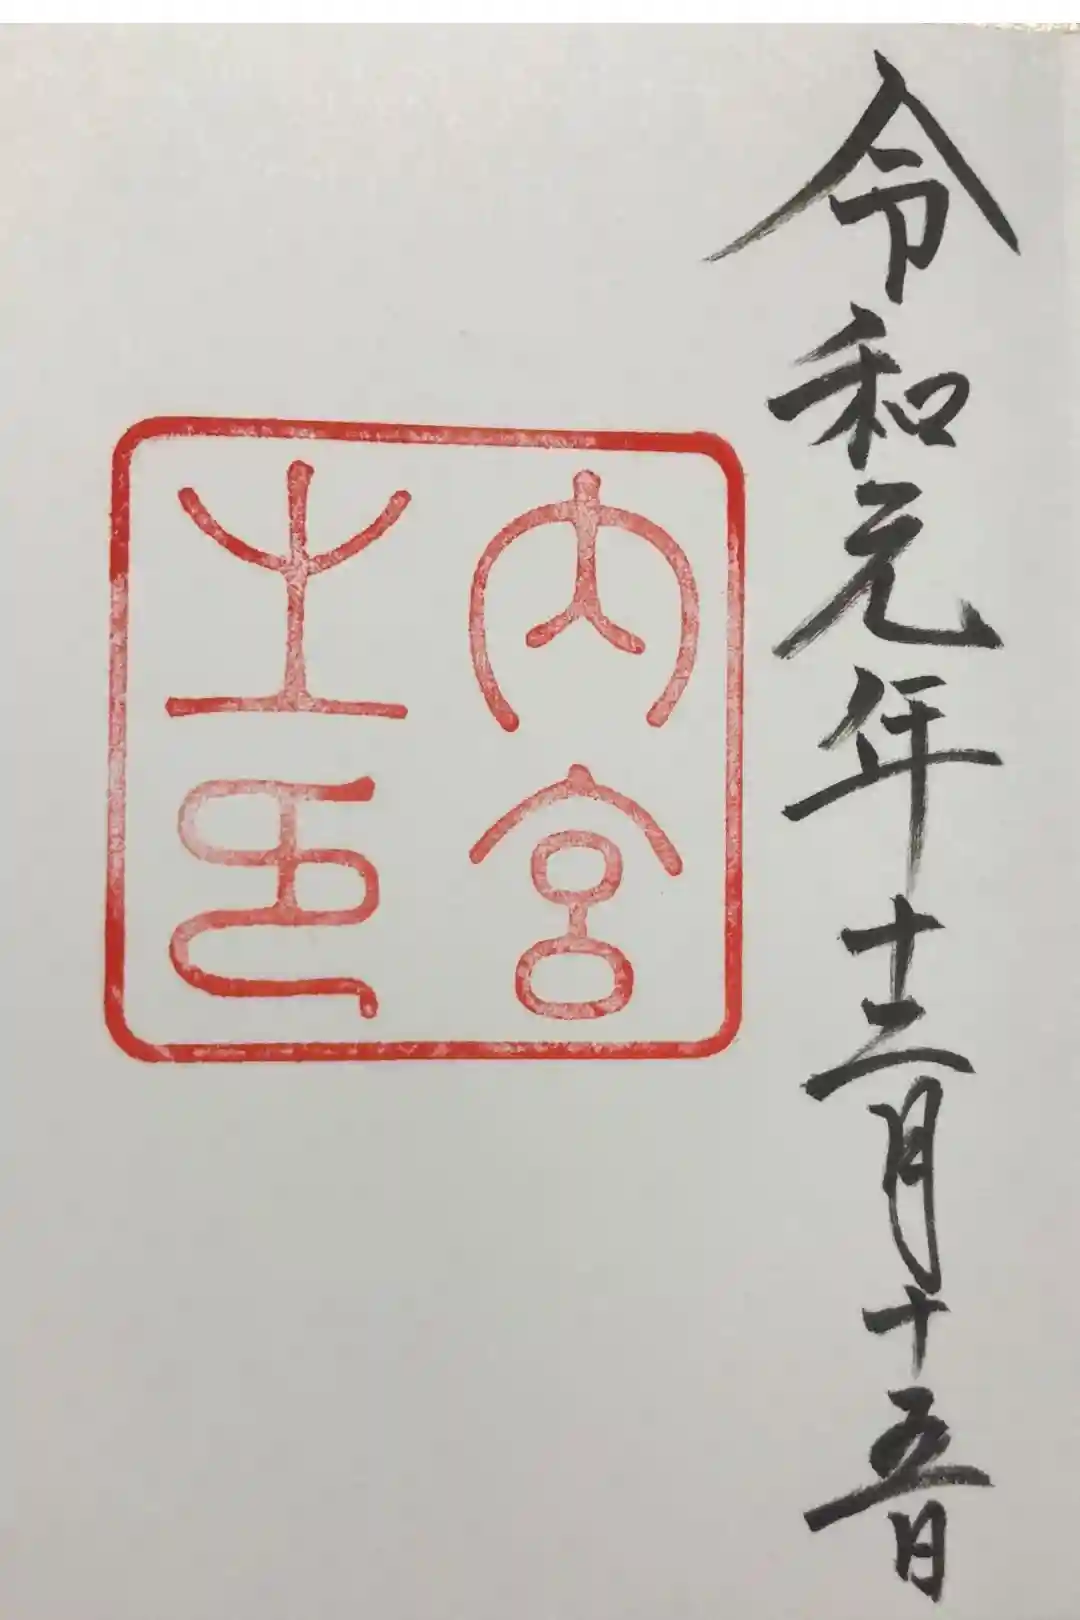 令和元年十二月十五日
内宮
之印